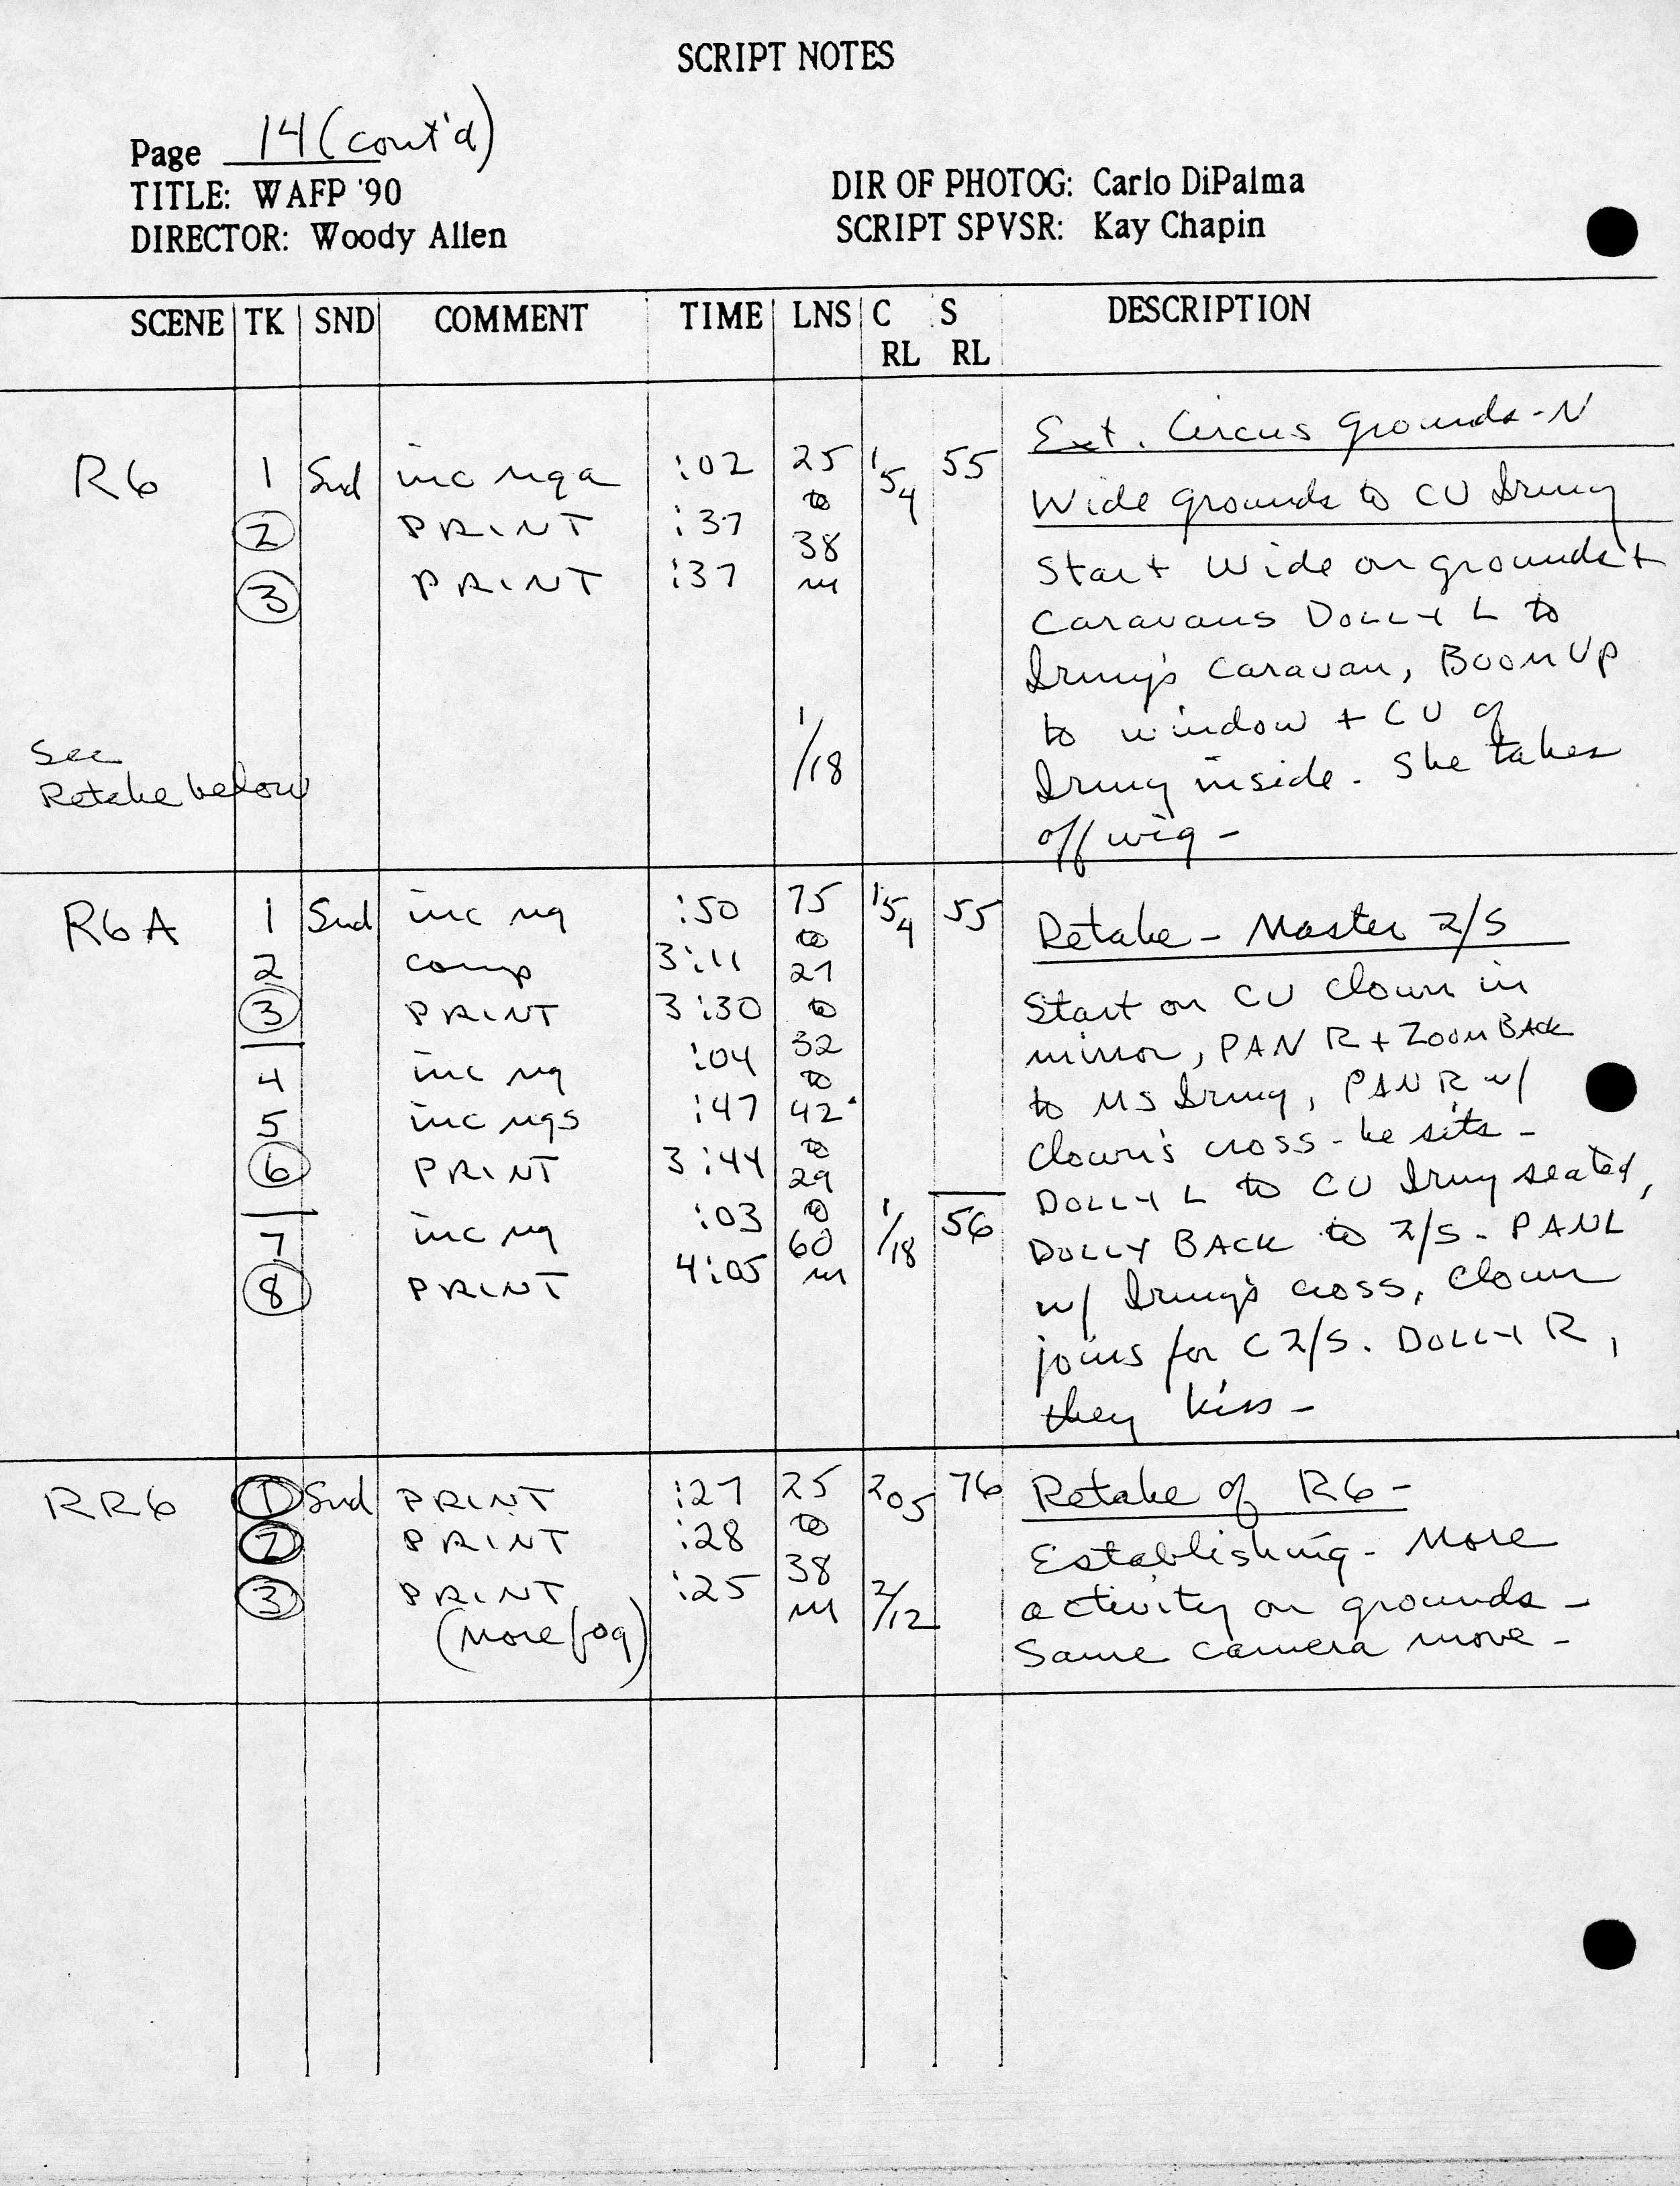 SCRIPT NOTES
Page 14 (cont'd)
TITLE: WAFP '90
DIRECTOR: Woody Allen
DIR OF PHOTOG: Carlo DiPalma
SCRIPT SPVSR: Kay Chapin
SCENE TK SND COMMENT TIME LNS C RL S RL DESCRIPTION
Ext. Circus grounds-N
R6 1 Snd inc nga :02 25 154 55
Wide grounds to CU Irmy
2 PRINT :37 to
3 PRINT :37 38 m
Start Wide on grounds +
Caravans DOLLY L to
Irmy's caravan, BOOM UP
to window + CU of
Irmy inside. She takes
off wig -
1/18
See
Retake below
R6A 1 Snd inc ng :50 75 154 55
2 comp 3:11 to 27
3 PRINT 3:30 to
4 inc ng :04 32 to
5 inc ngs :47 42
6 PRINT 3:44 to 29
7 inc ng :03 to 1/18 56
8 PRINT 4:05 60 m
Retake - Master 2/S
Start on CU Clown in
mirror, PAN R + ZOOM BACK
to MS Irmy, PAN R w/
Clown's cross - he sits -
DOLLY L to CU Irmy seated,
DOLLY BACK to 2/S - PAN L
w/ Irmy's cross, Clown
joins for C 2/S. DOLLY R,
they kiss -
RR6 1 Snd PRINT :27 25 205 76
2 PRINT :28 to
3 PRINT :25 38 m 2/12
(More fog)
Retake of R6 -
Establishing - More
activity on grounds -
Same camera move -